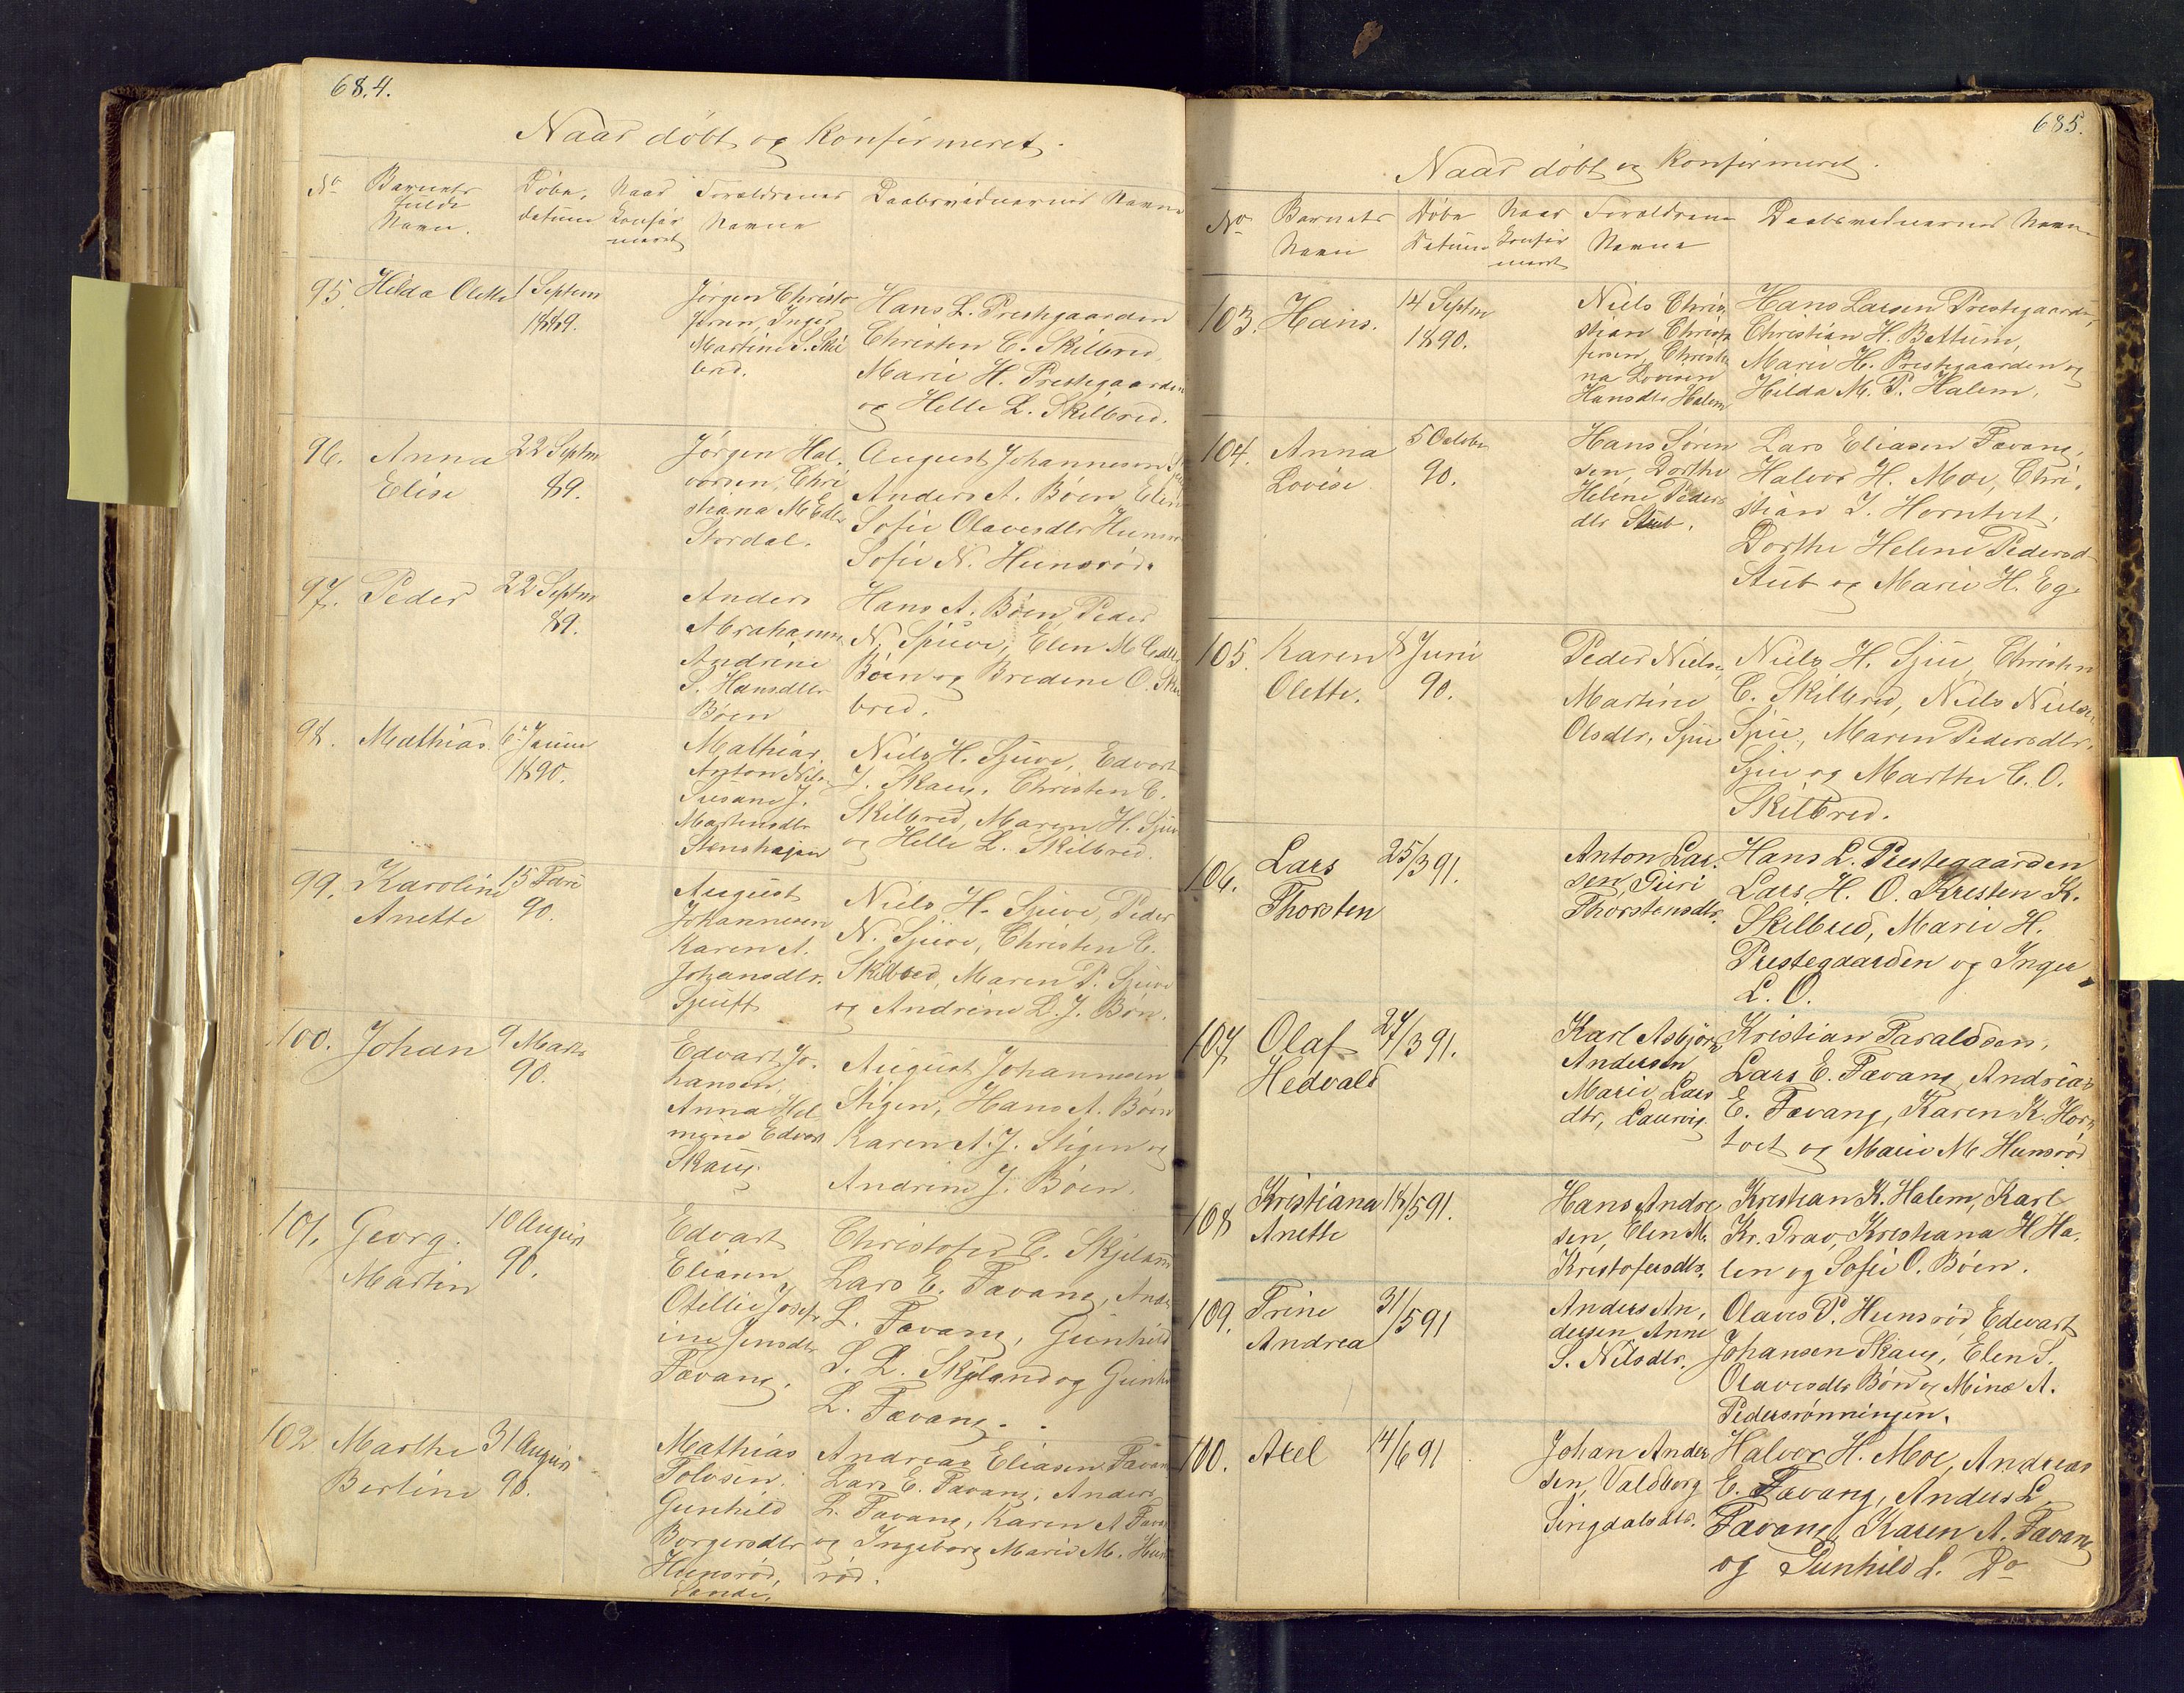 684.
Naar döbt og Konfirmeret.
No Barnets fulde Navn. Döbe, datum Naar Konfirmeret Forældrenes Navne Daabsvidnernes Navne
95. Hilda Olette 1 Septem 1889.
Jørgen Christo
Inger
Martine S. Skil
bred.
Hans L. Prestegaarden
Christen C. Skilbred,
Marie H. Prestegaarden
og Helle L. Skilbred.
96. Anna Elise 22 Septm 89.
Jørgen Hal,
vorsen, Chri
stiana
Stordal.
August Johannesen
Anders A. Böen, Elen
Sofie Olavesdtr Hunsrø
Sofie N. Hunsröd.
97. Peder 22 Septm 89.
Anders
Abrahamsen
Andrine
S. Hansdtr
Böen
Hans A. Böen, Peder
N. Sjuve, Elen M.
Böen og Bredine O. Skil
bred.
98. Mathias. 6 Januar 1890.
Mathias
Anton Nils
Susane J.
Mortensdtr
Stenshagen
Niels H. Sjuve, Edvart
J. Skaug, Christen C.
Skilbred, Maren H. Sjuv
og Helle L. Skilbred.
99. Karoline Anette 15 90.
August
Johannesen
Karen A.
Johansdtr.
Niels H. Sjuve, Peder
N. Sjuve, Christen C.
Skilbred, Maren P. Sjuve
og Andrine L. J. Bön.
100. Johan 9 Marts 90.
Edvart Jo,
hansen,
Anna Hel
mine Edvart
Skaug.
August Johannesen
Stigen, Hans A. Böen
Karen A. J. Stigen og
Andrine J. Böen.
101. Georg Martin 10 August 90.
Edvart
Eliasen
Otellie Josef
ine Jensdtr
Favang.
Christofer C. Skjeland
Lars E. Favang, Ande
L. Favang, Gunhild
S. L. Skjeland og Gunh
L. Favang.
102 Marthe Bertine 31 August 90.
Mathias
Tolvsen.
Gunhild
Borgersdtr
Hunsröd,
Sande.
Andreas Eliasen Favan
Lars E. Favang, Anders
L. Favang, Karen A Fava
og Ingeborg Marie M. Huns
röd.
685.
Naar döbt og Konfirmeret.
No Barnets Navn Döbe Datum Naar Konfirmeret Forældrenes Navne Daabsvidnernes Navne
103. Hans. 14 Septm 1890.
Niels Chris
stian Christ
fersen, Christi
na Lovisen
Hansdtr Halem
Hans Larsen Prestegaarden,
Christian H. Battum,
Marie H. Prestegaarden og
Hilda M. P. Halem.
104. Anna Lovise 5 October 90.
Hans Sören
sen, Dorthe
Helene Peders
dtr Stub.
Lars Eliasen Favang,
Halvor H. Moe, Chri,
stian J. Horntvet,
Dorthe Helene Pedersd
Stub og Marie H. Eg.
105. Karen Olette. 8 Juni 90.
Peder Niels,
Martine
Olsdtr, Sjue
Niels H. Sjue, Christen
C. Skilbred, Niels Nielse
Sjue, Maren Pedersdtr.
Sjue og Marthe C. O.
Skilbred.
106. Lars Thorsten 25/3 91.
Anton Lar.
sen, Guri
Thorstensdtr.
Hans L. Prestegaarden
Lars H. O. Kresten K.
Skilbred, Marie H.
Prestegaarden og Inger
L. O.
107. Olaf Hedvald 27/3 91.
Karl Asbjörn
Andersen
Marie Lars
dtr, Laurvig.
Kristian Taraldsen,
Lars E. Favang, Andreas
E. Favang, Karen K. Horn
tvet og Marie M. Hunsröd
108 Kristiana Anette 18/5 91.
Hans Andre
sen, Elen M.
Kristofersdtr.
Krestian K. Halem, Karl
Kr. Grav, Krestiana H Ha,
len og Sofie O. Böen.
109. Trine Andrea 31/5 91
Anders An,
dersen Anne
S. Nilsdtr.
Olaves P. Hunsröd Edevart
Johansen Skaug, Elen S.
Olavesdtr Bön og Mina A.
Pedersrönningen.
100. Axel 14/6 91
Johan Ander
sen, Valdborg
Singdalsdtr.
Halvor H. Moe, Andreas
E. Favang, Anders L.
Favang, Karen A. Favang
og Gunhild L. Do